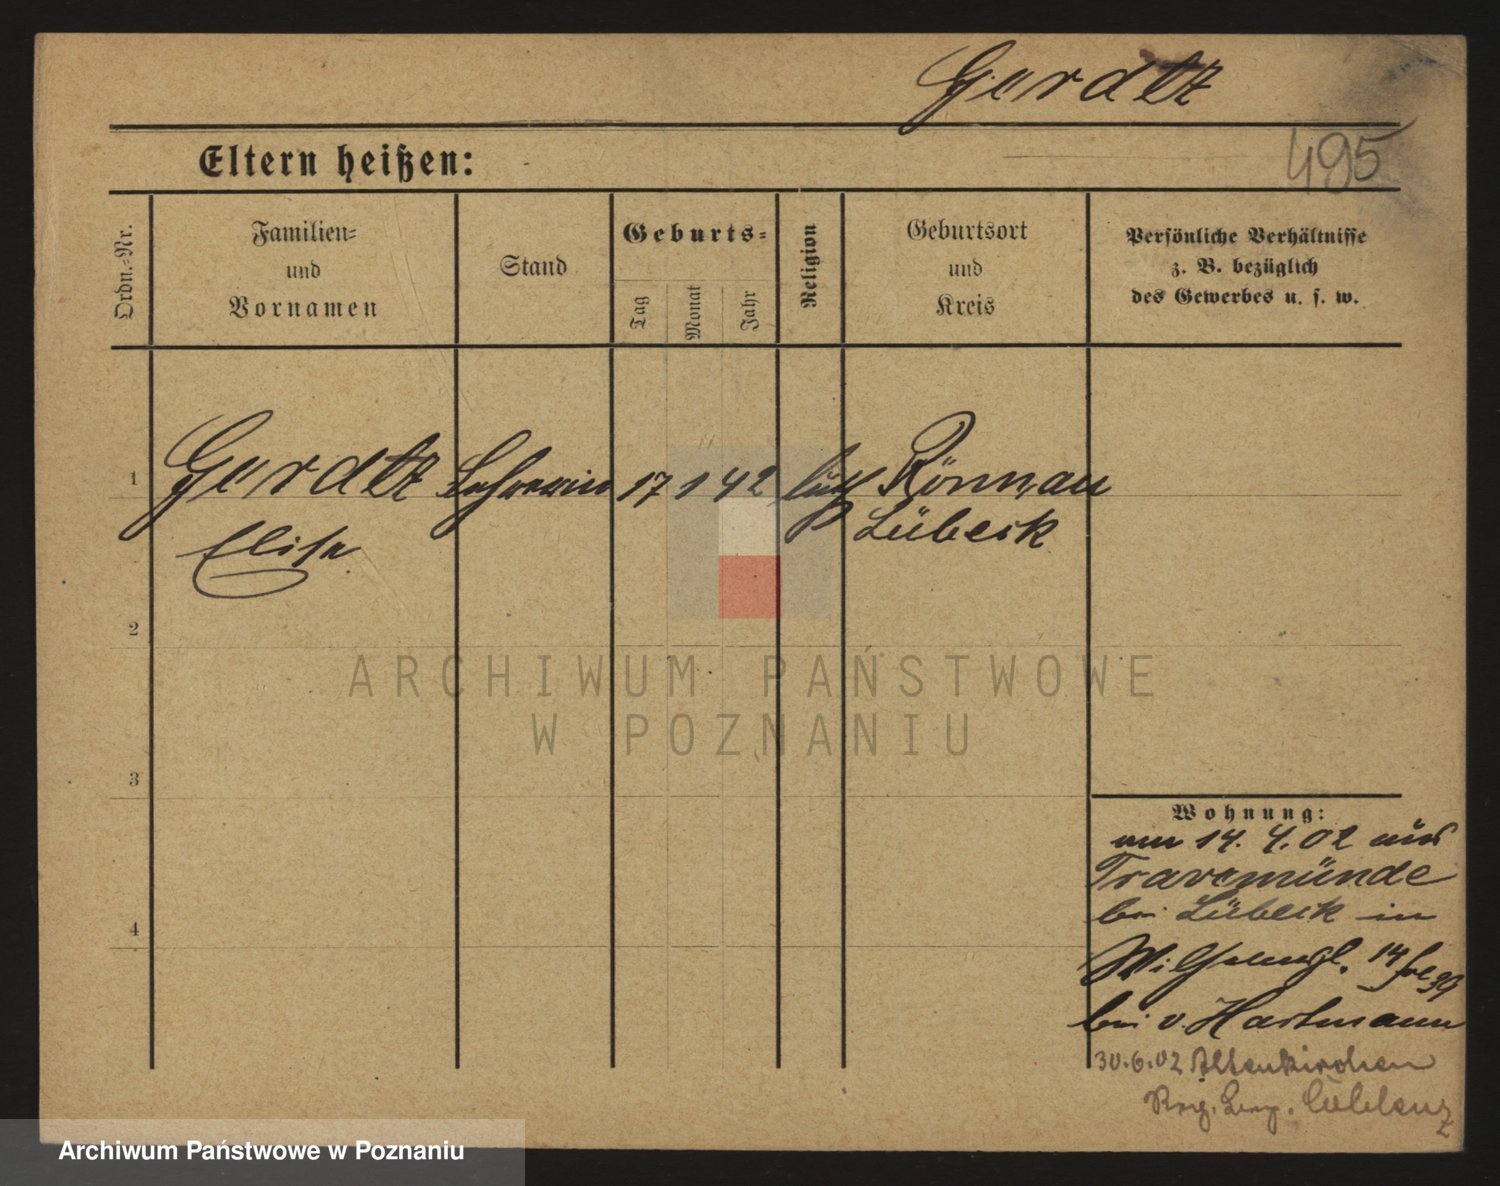 Gerdtz
495
Eltern heißen:
Ordn.-Nr.
Familien-
und
Vornamen
Stand
Geburts-
Tag
Monat
Jahr
Religion
Geburtsort
und
Kreis
Persönliche Verhältnisse
z. B. bezüglich
des Gewerbes u. s. w.
1
Gerdtz Lehrerin 17 1 42 luth Rönnau
Elise Lübeck
2
ARCHIWUM PAŃSTWOWE
W POZNANIU
3
4
Wohnung:
am 14. 4. 02 aus
Travemünde
bei Lübeck in
14
bei v. Hartmann
30.6.02 Altenkirchen
Reg. Bez. Coblenz
Archiwum Państwowe w Poznaniu